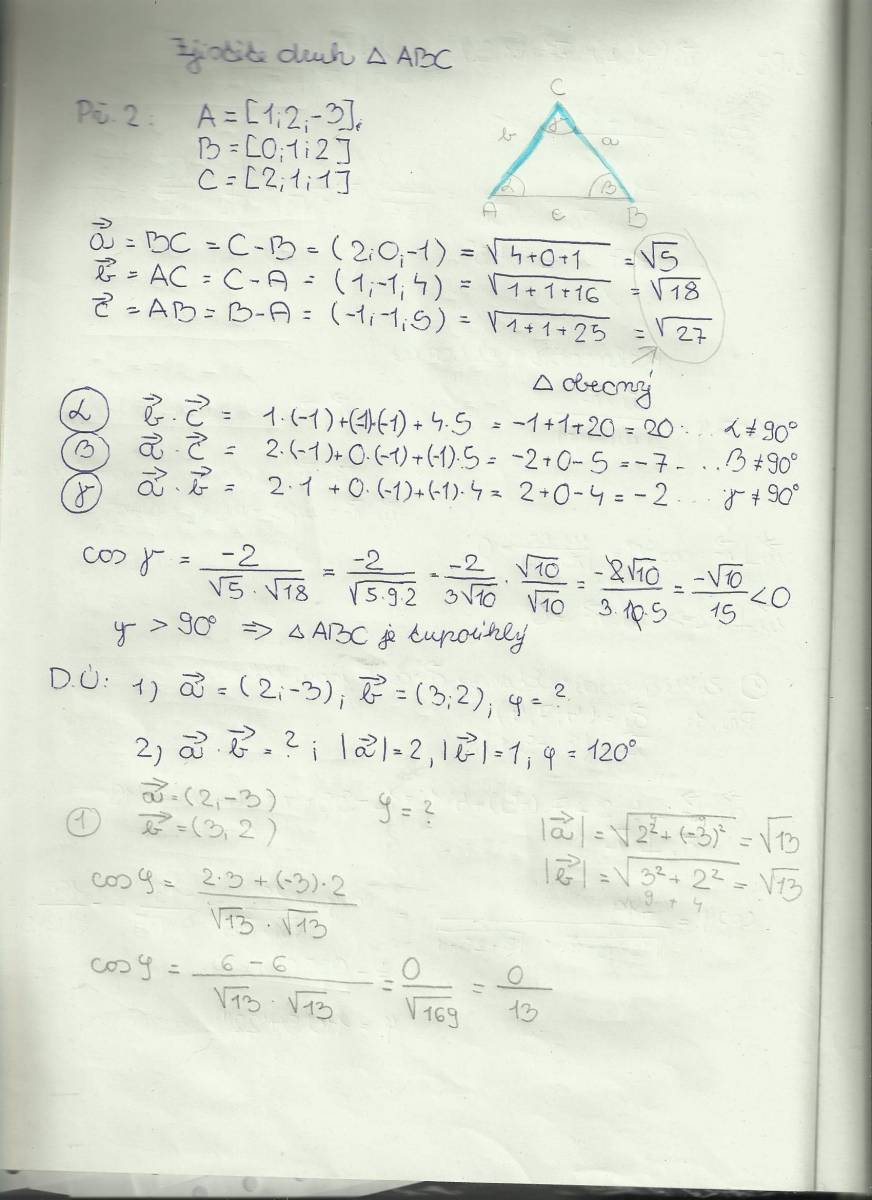 Zjistěte druh △ ABC
Př. 2: A = [1; 2; -3],
B = [0; 1; 2]
C = [2; 1; 1]
C
b γ a
α β
A c B
a⃗ = BC = C - B = (2; 0; -1) = √(4+0+1) = √5
b⃗ = AC = C - A = (1; -1; 4) = √(1+1+16) = √18
c⃗ = AB = B - A = (-1; -1; 5) = √(1+1+25) = √27
△ obecný
α b⃗ · c⃗ = 1·(-1)+(-1)·(-1)+4·5 = -1+1+20 = 20 ... α ≠ 90°
β a⃗ · c⃗ = 2·(-1)+0·(-1)+(-1)·5 = -2+0-5 = -7 ... β ≠ 90°
γ a⃗ · b⃗ = 2·1 + 0·(-1)+(-1)·4 = 2+0-4 = -2 ... γ ≠ 90°
cos γ = -2/(√5 · √18) = -2/√(5·9·2) = -2/(3√10) · √10/√10 = -2√10/(3·10·5) = -√10/15 < 0
γ > 90° ⇒ △ ABC je tupoúhlý
D.Ú: 1) a⃗ = (2; -3); b⃗ = (3; 2); φ = ?
2) a⃗ · b⃗ = ? ; |a⃗| = 2, |b⃗| = 1; φ = 120°
① a⃗ = (2, -3) φ = ? |a⃗| = √(2² + (-3)²) = √13
b⃗ = (3, 2) |b⃗| = √(3² + 2²) = √13
9 + 4
cos φ = (2·3 + (-3)·2)/(√13 · √13)
cos φ = (6 - 6)/(√13 · √13) = 0/√169 = 0/13